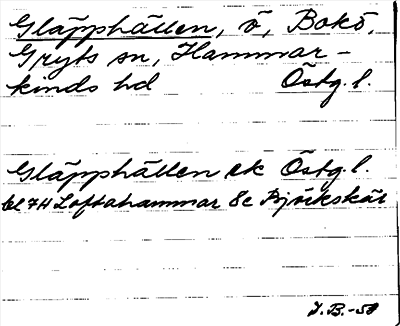 Gläpphällen, ö, Bokö,
Gryts sn, Hammar-
kinds hd Östg. l.
Gläpphällen ek Östg. l.
bl 7H Loftahammar 8c Björkskär
J.B.-58